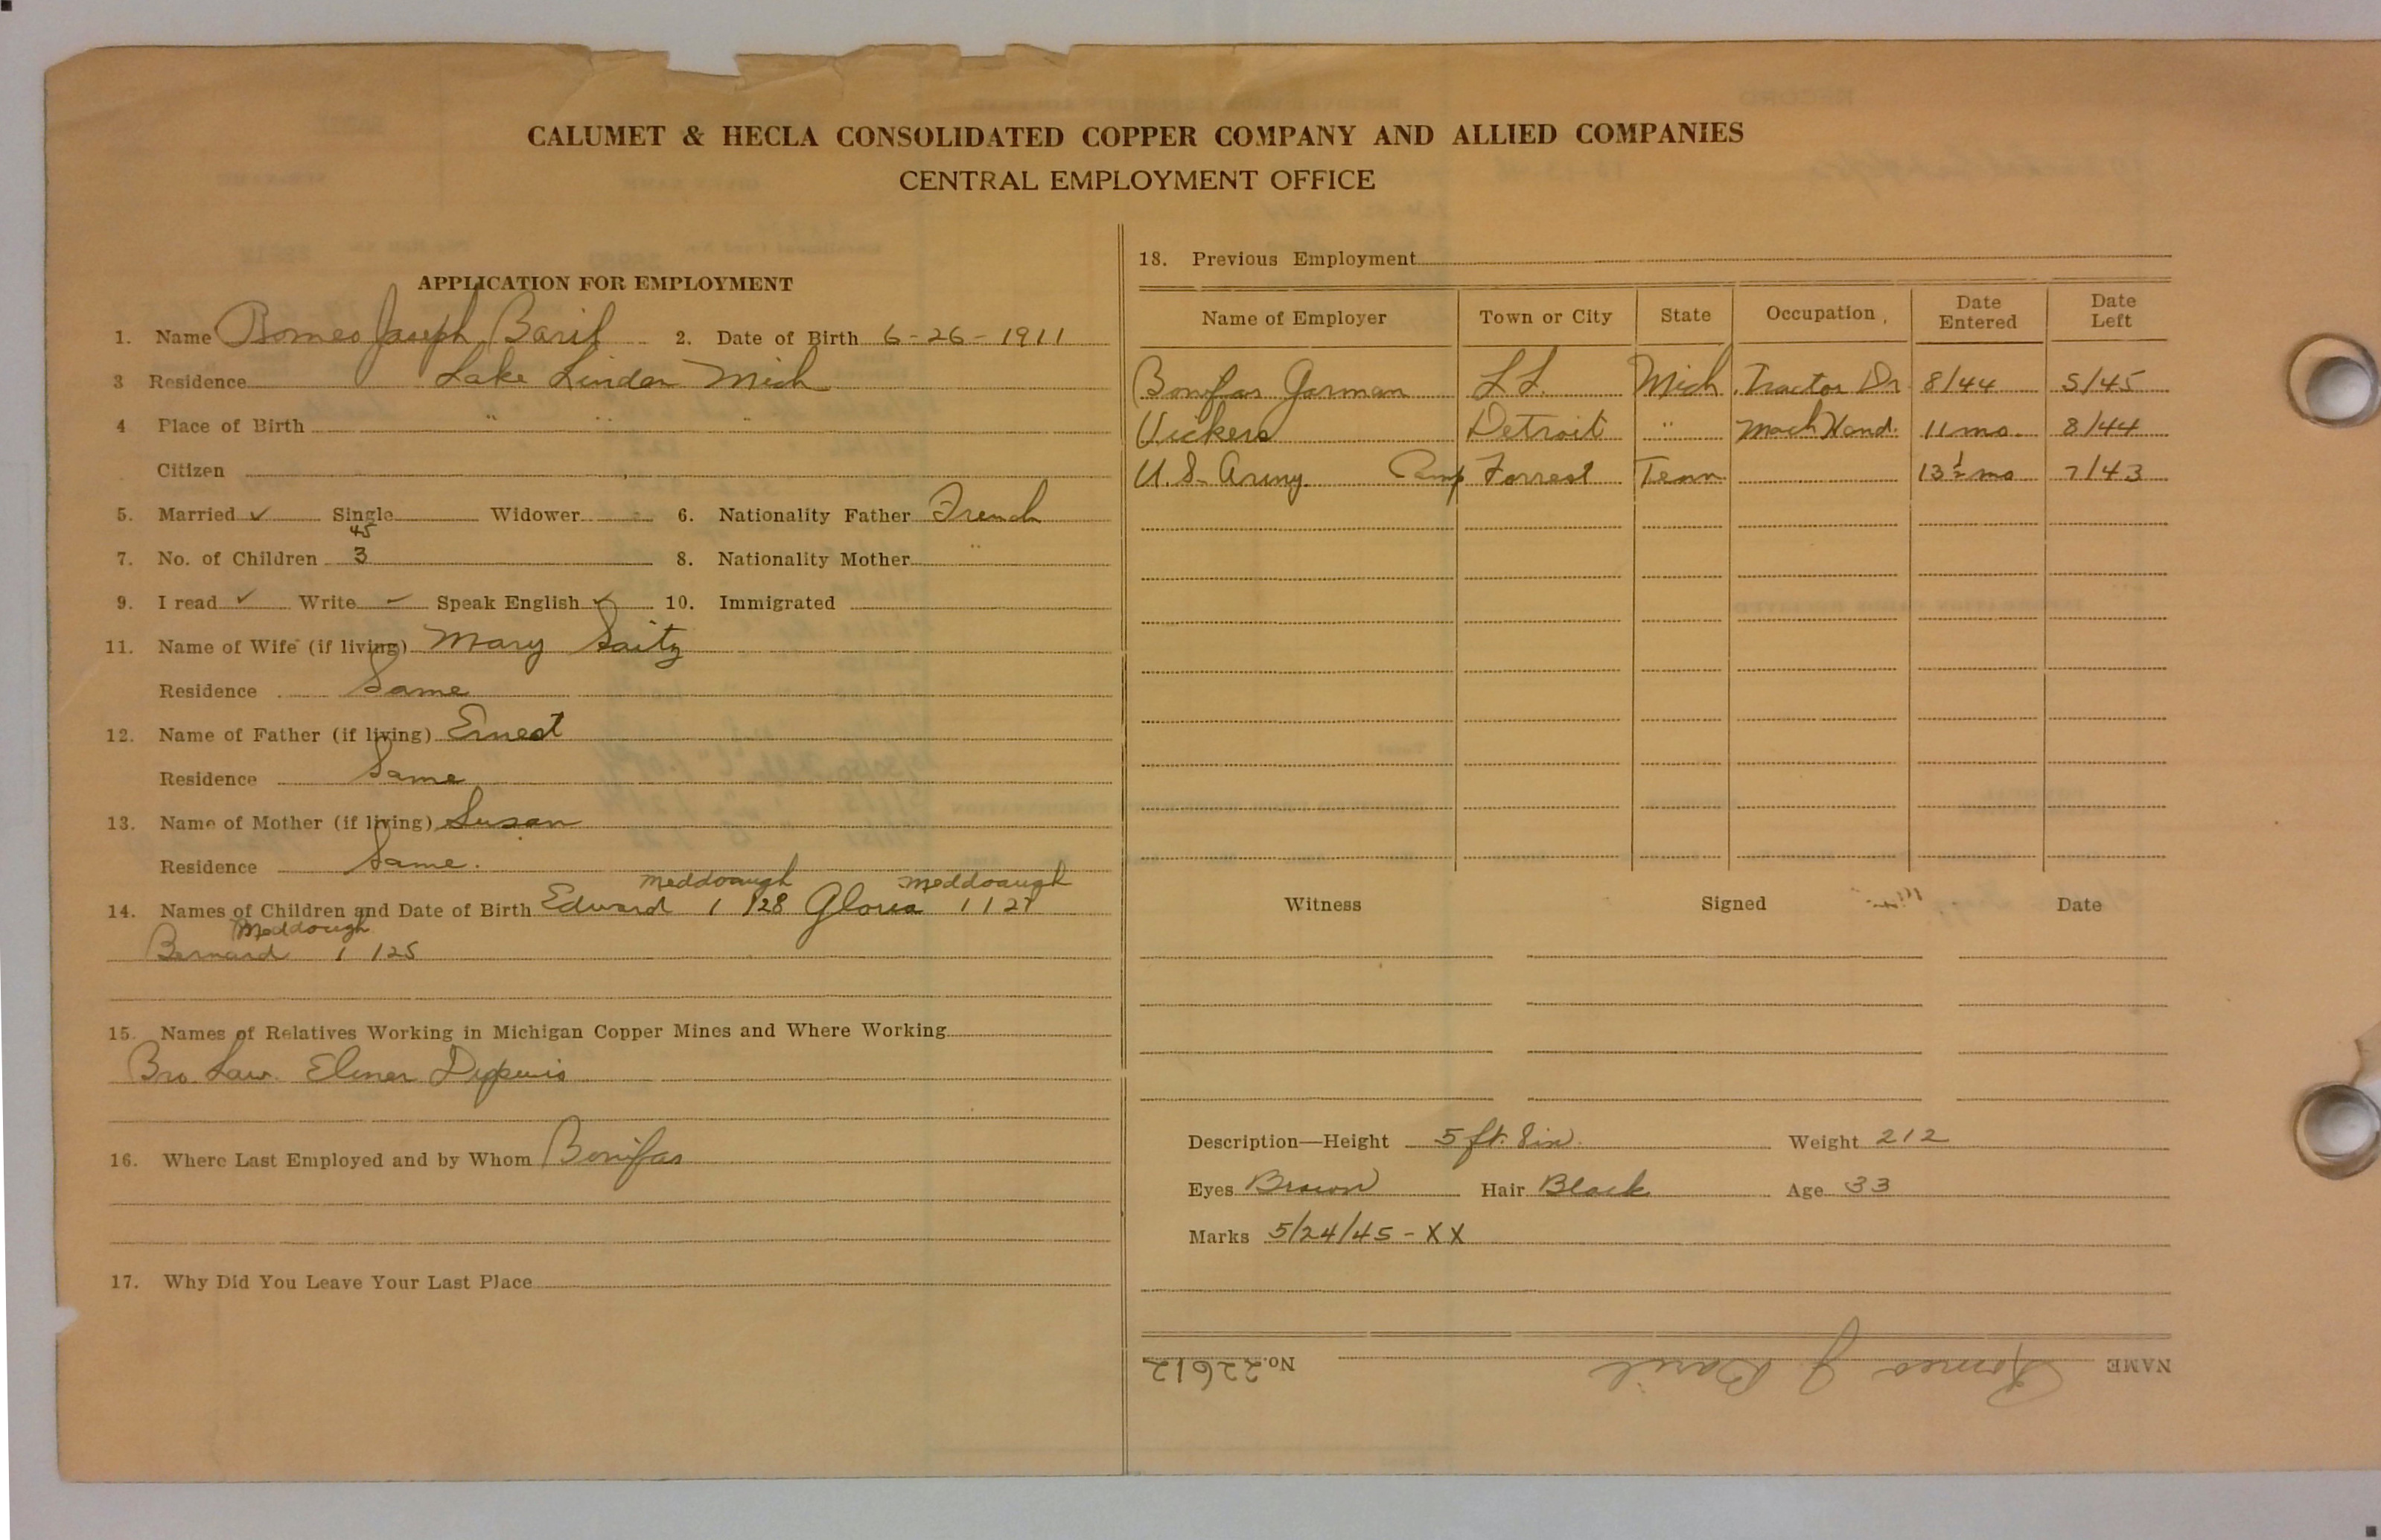 CALUMET & HECLA CONSOLIDATED COPPER COMPANY AND ALLIED COMPANIES
CENTRAL EMPLOYMENT OFFICE
APPLICATION FOR EMPLOYMENT
1. Name Romeo Joseph Baril 2. Date of Birth 6-26-1911
3 Residence Lake Linden Mich
4 Place of Birth " "
Citizen
5. Married ✓ Single Widower 6. Nationality Father French
45
7. No. of Children 3 8. Nationality Mother "
9. I read ✓ Write ✓ Speak English ✓ 10. Immigrated
11. Name of Wife (if living) Mary Saitz
Residence Same
12. Name of Father (if living) Ernest
Residence Same
13. Name of Mother (if living) Susan
Residence Same.
Meddaugh Meddaugh
14. Names of Children and Date of Birth Edward 1 /28 Gloria 1 / 27
Meddough
Bernard 1 /25
15. Names of Relatives Working in Michigan Copper Mines and Where Working
Bro. Law. Elmer
16. Where Last Employed and by Whom Bonifas
17. Why Did You Leave Your Last Place
18. Previous Employment
Name of Employer Town or City State Occupation Date Entered Date Left
Bonifas Gorman L.L. Mich. Tractor Dr. 8/44 5/45
Vickers Detroit " Mach Hand. 11 mo. 8/44
U.S. Army Camp Forrest Tenn 13½ mo 7/43
Witness Signed Date
Description—Height 5 ft. 8 in. Weight 212
Eyes Brown Hair Black Age 33
Marks 5/24/45 - XX
NAME Romeo J. Baril No. 22612